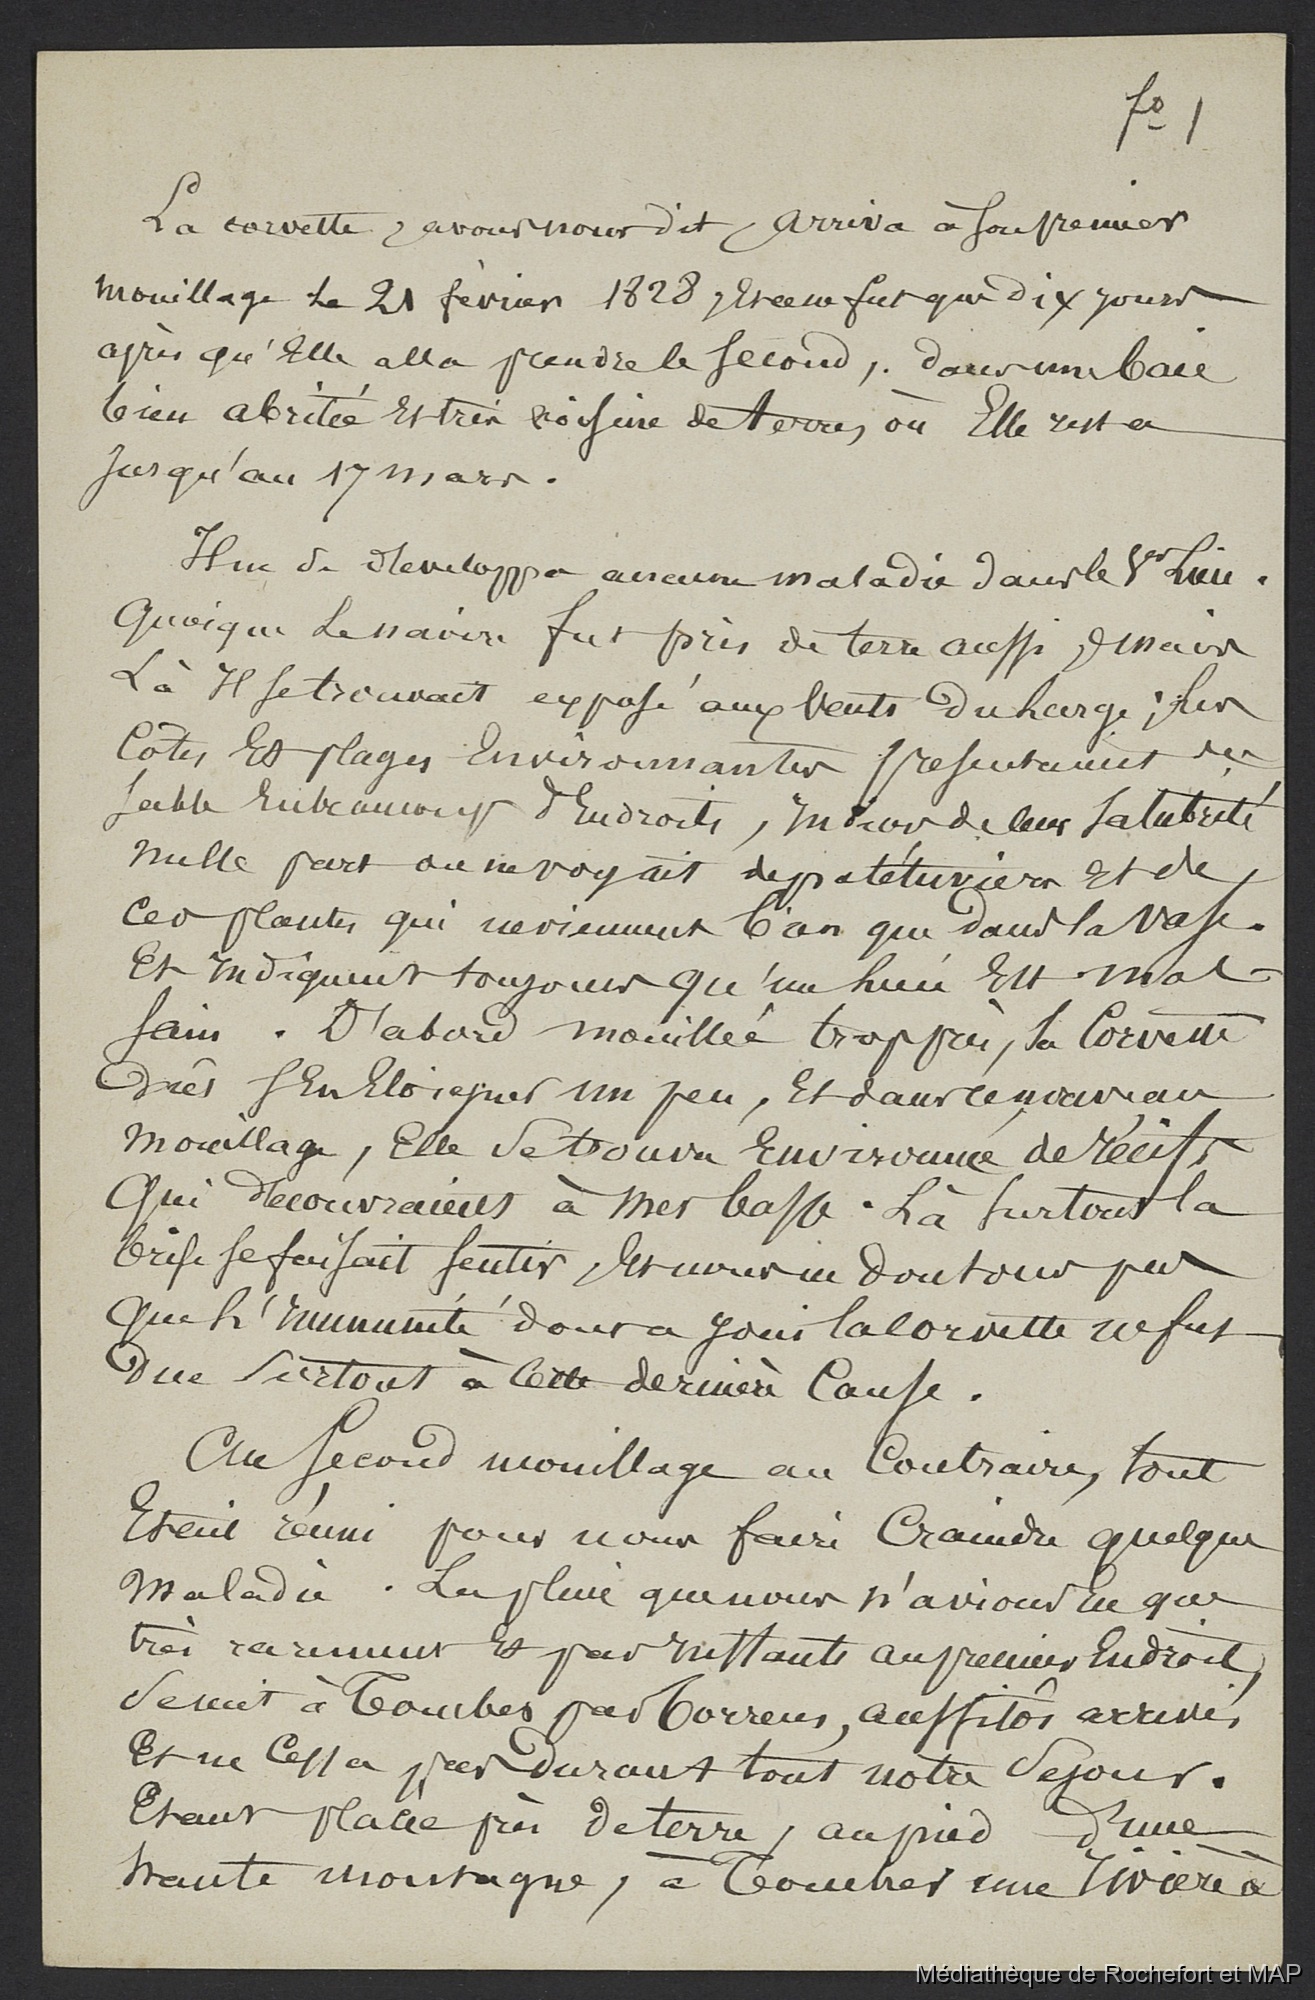 fo 1
La corvette, avons nous dit, arriva à son premier
mouillage le 21 février 1828, et ce ne fut que dix jours
après qu'Elle alla prendre le second, dans une baie
bien abritée et très voisine de terre, où Elle resta
jusqu'au 17 mars.
Il ne se développa aucune maladie dans le 1er Lieu.
Quoique le navire fut près de terre aussi, mais
Là Il se trouvait exposé aux Vents du Large ; les
Côtes Et plages Environnantes presentaient du
sable En beaucoup d'Endroits, Indices de leur salubrité
nulle part on ne voyait de palétuviers Et de
ces plantes qui ne viennent bien que dans la vase.
Et Indiquent toujours qu'un lieu Est mal
sain. D'abord mouillée trop près, la Corvette
dût s'En Eloigner un peu, Et dans ce nouveau
mouillage, Elle se trouva Environnée de récifs
Qui découvraient à mer basse. Là surtout la
brise se faisait sentir, Et nous ne doutons pas
que L'Immunité dont a joui la Corvette ne fut
due surtout à Cette dernière Cause.
Au second mouillage au Contraire, tout
Etait réuni pour nous faire Craindre quelque
maladie. La pluie que nous n'avions Eu que
très rarement Et par Instants au premier Endroit,
se mit à tomber par torrens, aussitôt arrivés
Et ne Cessa pas durant tout notre séjour.
Etant placée près de terre, au pied d'une
haute montagne, à toucher une rivière à
Médiathèque de Rochefort et MAP